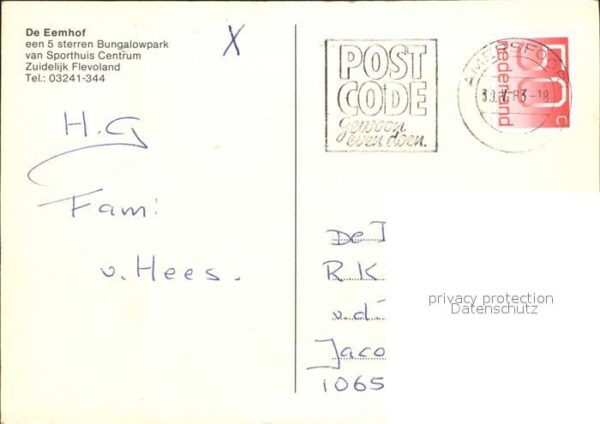 De Eemhof
een 5 sterren Bungalowpark
van Sporthuis Centrum
Zuidelijk Flevoland
Tel.: 03241-344
X
H.G
Fam:
v. Hees.
POST
CODE
gewoon
even doen.
AMERSFOORT
83-18
50
c
nederland
De
R.K
v.d.
Jaco
1065
privacy protection
Datenschutz